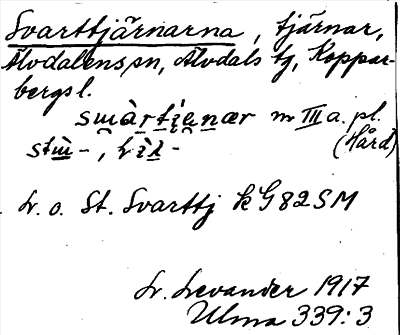 Svarttjärnarna, tjärnar,
Älvdalens sn, Älvdals tg, Koppar-
bergs l.
smàrtjenær m III a. pl.
(Hård)
L. o. St. Svarttj k G 82 SM
L. Levander 1917
Ulma 339:3